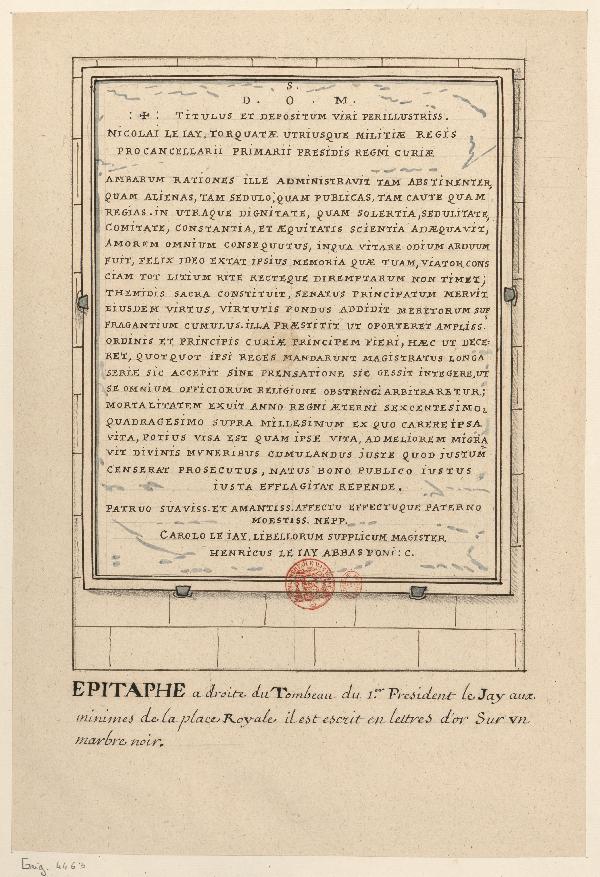 S.
D. O. M.
: ✠ : TITULUS ET DEPOSITUM VIRI PERILLUSTRISS.
NICOLAI LE IAY, TORQUATÆ UTRIUSQUE MILITIÆ REGIS
PROCANCELLARII PRIMARII PRESIDIS REGNI CURIÆ
AMBARUM RATIONES ILLE ADMINISTRAVIT TAM ABSTINENTER,
QUAM ALIENAS, TAM SEDULO, QUAM PUBLICAS, TAM CAUTE QUAM
REGIAS. IN UTRAQUE DIGNITATE, QUAM SOLERTIA, SEDULITATE,
COMITATE, CONSTANTIA, ET ÆQUITATIS SCIENTIA ADÆQUAVIT,
AMOREM OMNIUM CONSEQUUTUS, INQUA VITARE ODIUM ARDUUM
FUIT, FELIX IDEO EXTAT IPSIUS MEMORIA QUÆ TUAM, VIATOR, CONS
CIAM TOT LITIUM RITE RECTEQUE DIREMPTARUM NON TIMET;
THEMIDIS SACRA CONSTITUIT, SENATUS PRINCIPATUM MERVIT
EIUSDEM VIRTUS, VIRTUTIS PONDUS ADDIDIT MERETORUM SUF
FRAGANTIUM CUMULUS. ILLA PRÆSTITIT UT OPORTERET AMPLISS.
ORDINIS ET PRINCIPIS CURIÆ PRINCIPEM FIERI, HÆC UT DECE-
RET, QUOTQUOT IPSI REGES MANDARUNT MAGISTRATUS LONGA
SERIE SIC ACCEPIT SINE PRENSATIONE SIC GESSIT INTEGERE, UT
SE OMNIUM OFFICIORUM RELIGIONE OBSTRINGI ARBITRARETUR;
MORTALITATEM EXUIT ANNO REGNI ÆTERNI SEXCENTESIMO,
QUADRAGESIMO SUPRA MILLESIMUM EX QUO CARERE IPSA
VITA, POTIUS VISA EST QUAM IPSE VITA, AD MELIOREM MIGRA
VIT DIVINIS MVNERIBUS CUMULANDUS JUSTE QUOD JUSTUM
CENSERAT PROSECUTUS, NATUS BONO PUBLICO IUSTUS
IUSTA EFFLAGITAT REPENDE.
PATRUO SUAVISS. ET AMANTISS. AFFECTU EFFECTUQUE PATERNO
MOESTISS. NEPP.
CAROLO LE IAY, LIBELLORUM SUPPLICUM MAGISTER
HENRICUS LE IAY ABBAS PONI: C.
EPITAPHE a droite du Tombeau du 1.er President le Jay aux
minimes de la place Royale il est escrit en lettres d'or Sur vn
marbre noir.
Gaig. 4463